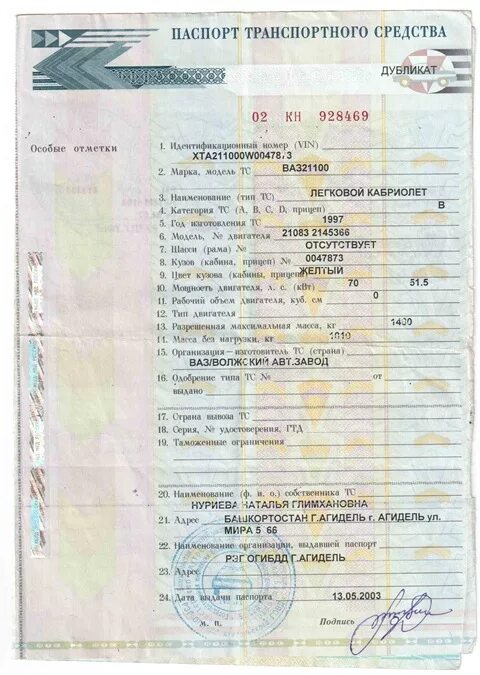 ПАСПОРТ ТРАНСПОРТНОГО СРЕДСТВА
ДУБЛИКАТ
02 КН 928469
Особые отметки
1. Идентификационный номер (VIN)
2. Марка, модель ТС ВАЗ21100
3. Наименование (тип ТС) ЛЕГКОВОЙ КАБРИОЛЕТ
4. Категория ТС (А, В, С, D, прицеп) В
5. Год изготовления ТС 1997
6. Модель, № двигателя 21083 2145366
7. Шасси (рама) № ОТСУТСТВУЕТ
8. Кузов (кабина, прицеп) № 0047873
9. Цвет кузова (кабины, прицепа) ЖЕЛТЫЙ
10. Мощность двигателя, л. с. (кВт) 70 51.5
11. Рабочий объем двигателя, куб. см 0
12. Тип двигателя
13. Разрешенная максимальная масса, кг 1400
14. Масса без нагрузки, кг
15. Организация – изготовитель ТС (страна)
ВАЗ/ВОЛЖСКИЙ АВТ.ЗАВОД
16. Одобрение типа ТС № от
выдано
17. Страна вывоза ТС
18. Серия, № удостоверения, ГТД
19. Таможенные ограничения
20. Наименование (ф. и. о.) собственника ТС
НУРИЕВА НАТАЛЬЯ ГЛИМХАНОВНА
21. Адрес БАШКОРТОСТАН Г.АГИДЕЛЬ г. АГИДЕЛЬ ул.
МИРА 5 66
22. Наименование организации, выдавшей паспорт
РЭГ ОГИБДД Г.АГИДЕЛЬ
23. Адрес
24. Дата выдачи паспорта 13.05.2003
м. п. Подпись